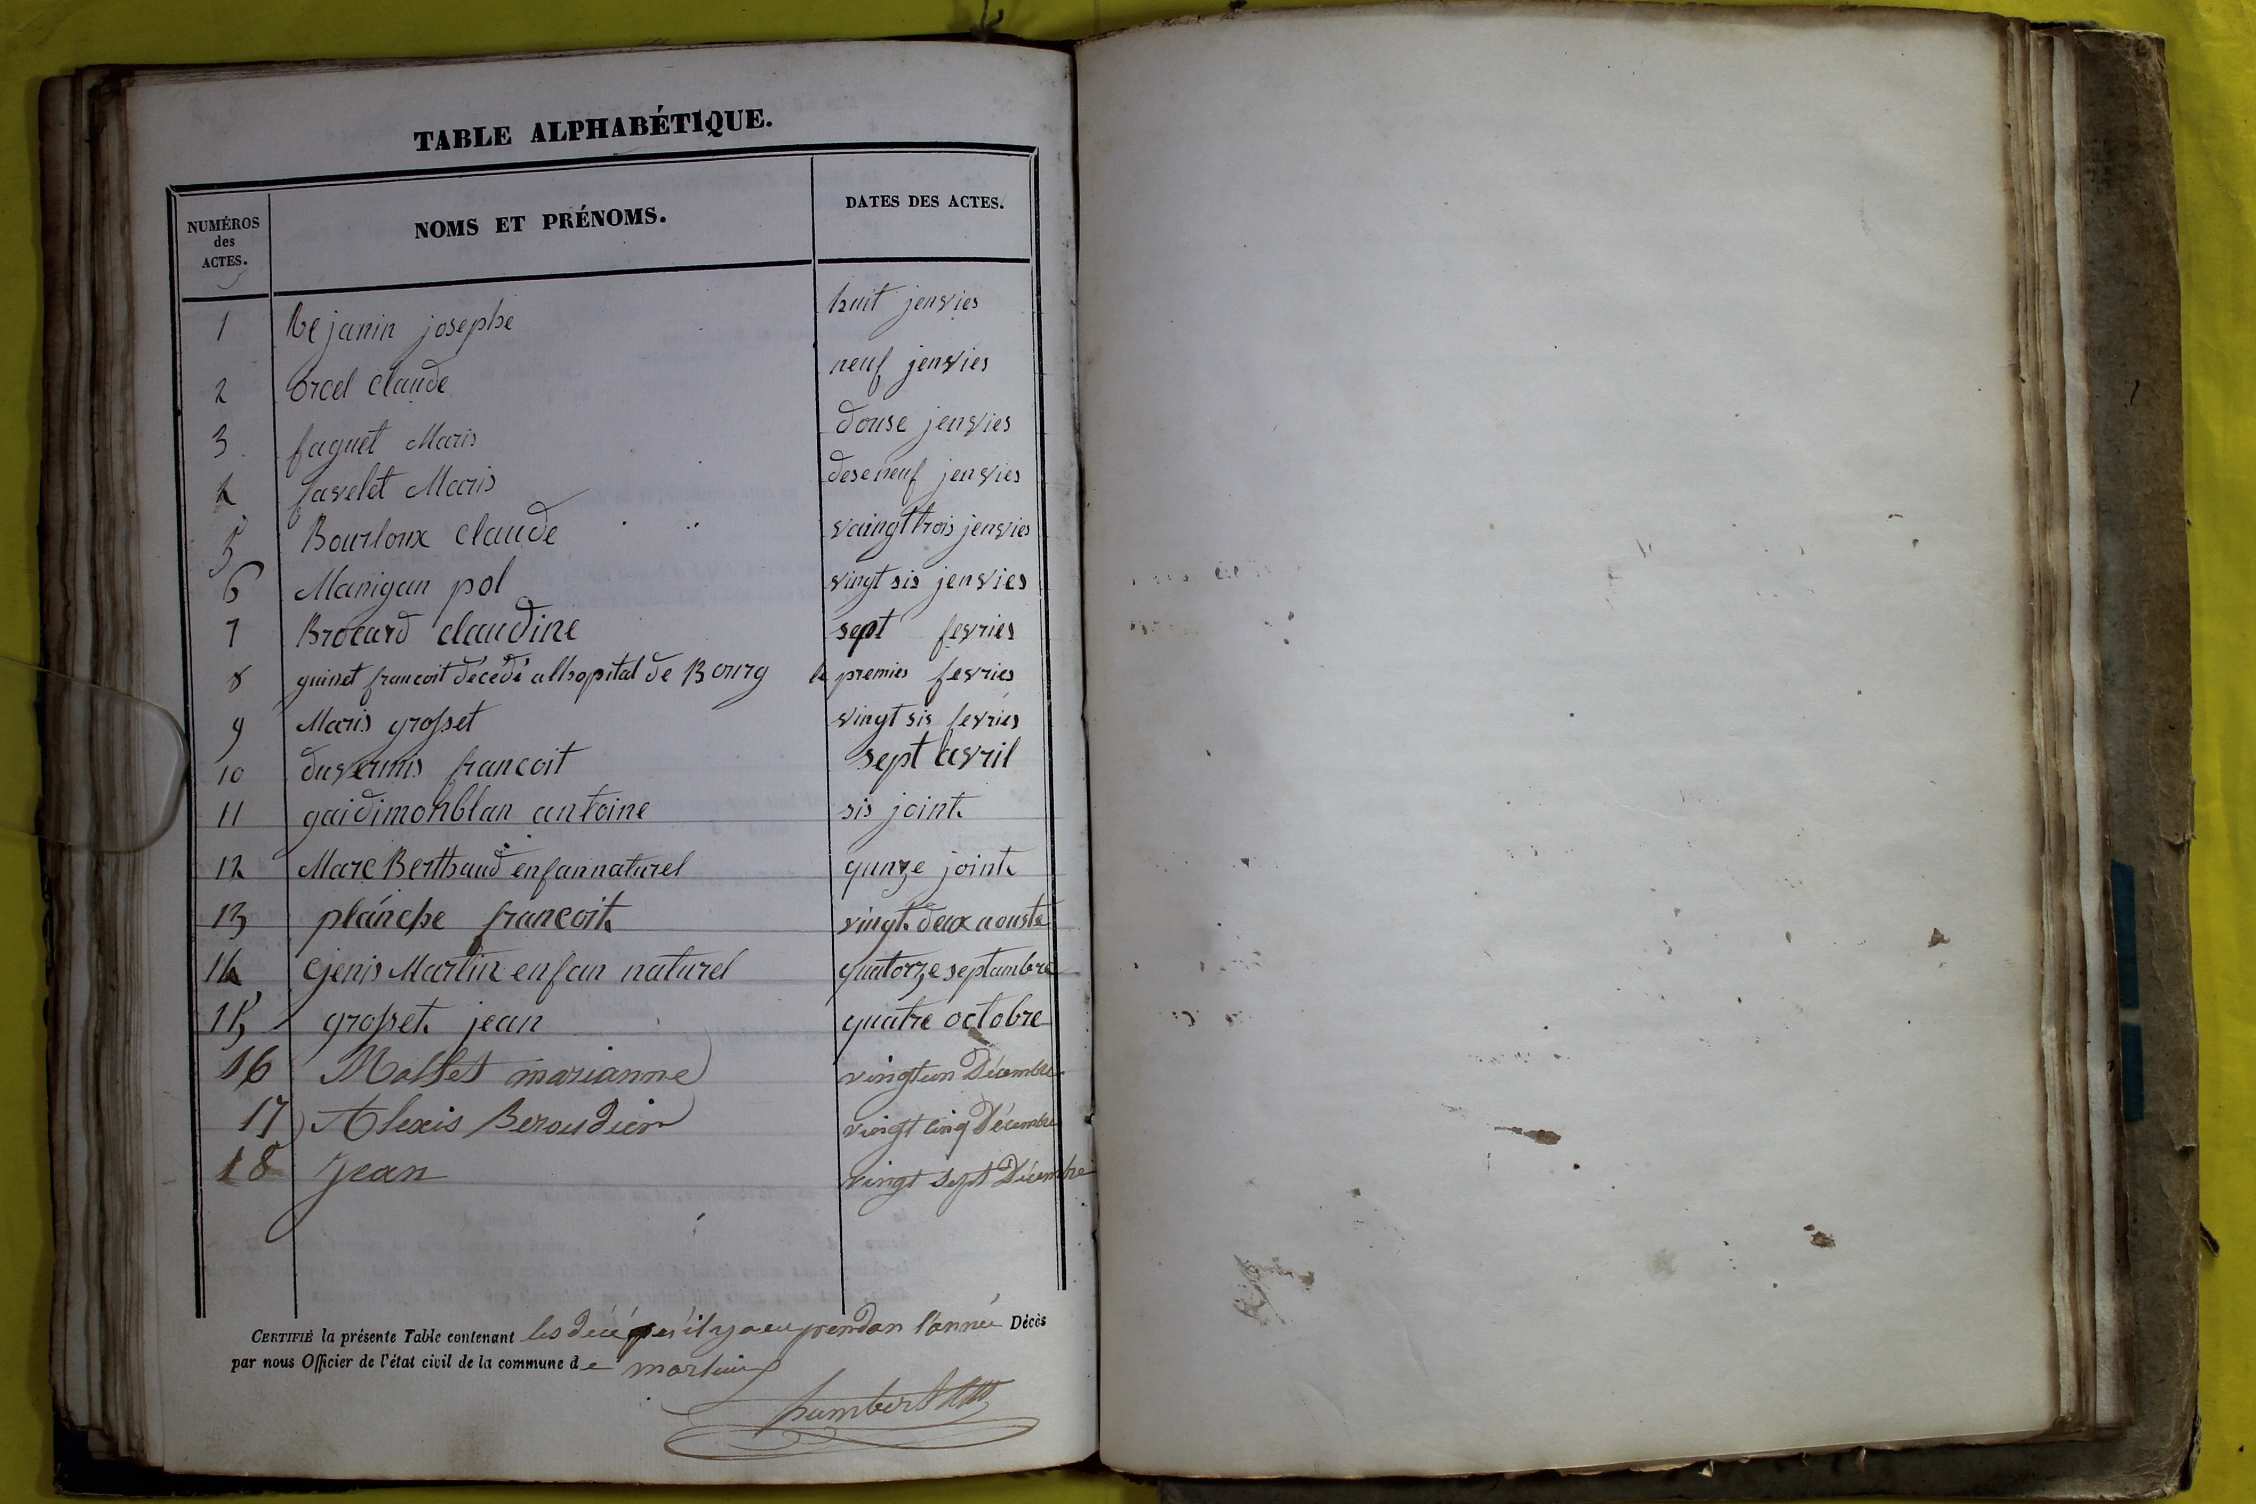 TABLE ALPHABÉTIQUE.
NUMÉROS des ACTES. NOMS ET PRÉNOMS. DATES DES ACTES.
1 Rejanin josephe huit jenvies
2 orcel claude neuf jenvies
3 faguet Maris douse jenvies
4 favelet Maris deseneuf jenvies
5 Bourloux claude vaingttrois jenvies
6 Manigan pol vingt sis jenvies
7 Brocard claudine sept fevries
8 guinet francoit décédé alhopital de Bourg le premies fevries
9 Maris grosset vingt sis fevries
10 duvernis francoit sept avril
11 gaidimonblan antoine sis joint
12 Marc Berthaud enfannaturel qunze joint
13 planche francoit vingt deux aouste
14 Martin enfan naturel quatorze septambre
15 grosset jean quatre octobre
16 Mollet marianne vingtun Décembre
17 Alexis Beroudier vingt cinq Décembre
18 Jean vingt sept Décembre
CERTIFIÉ la présente Table contenant les décé qu'il y a eu pendan l'année Décès
par nous Officier de l'état civil de la commune de
humbert